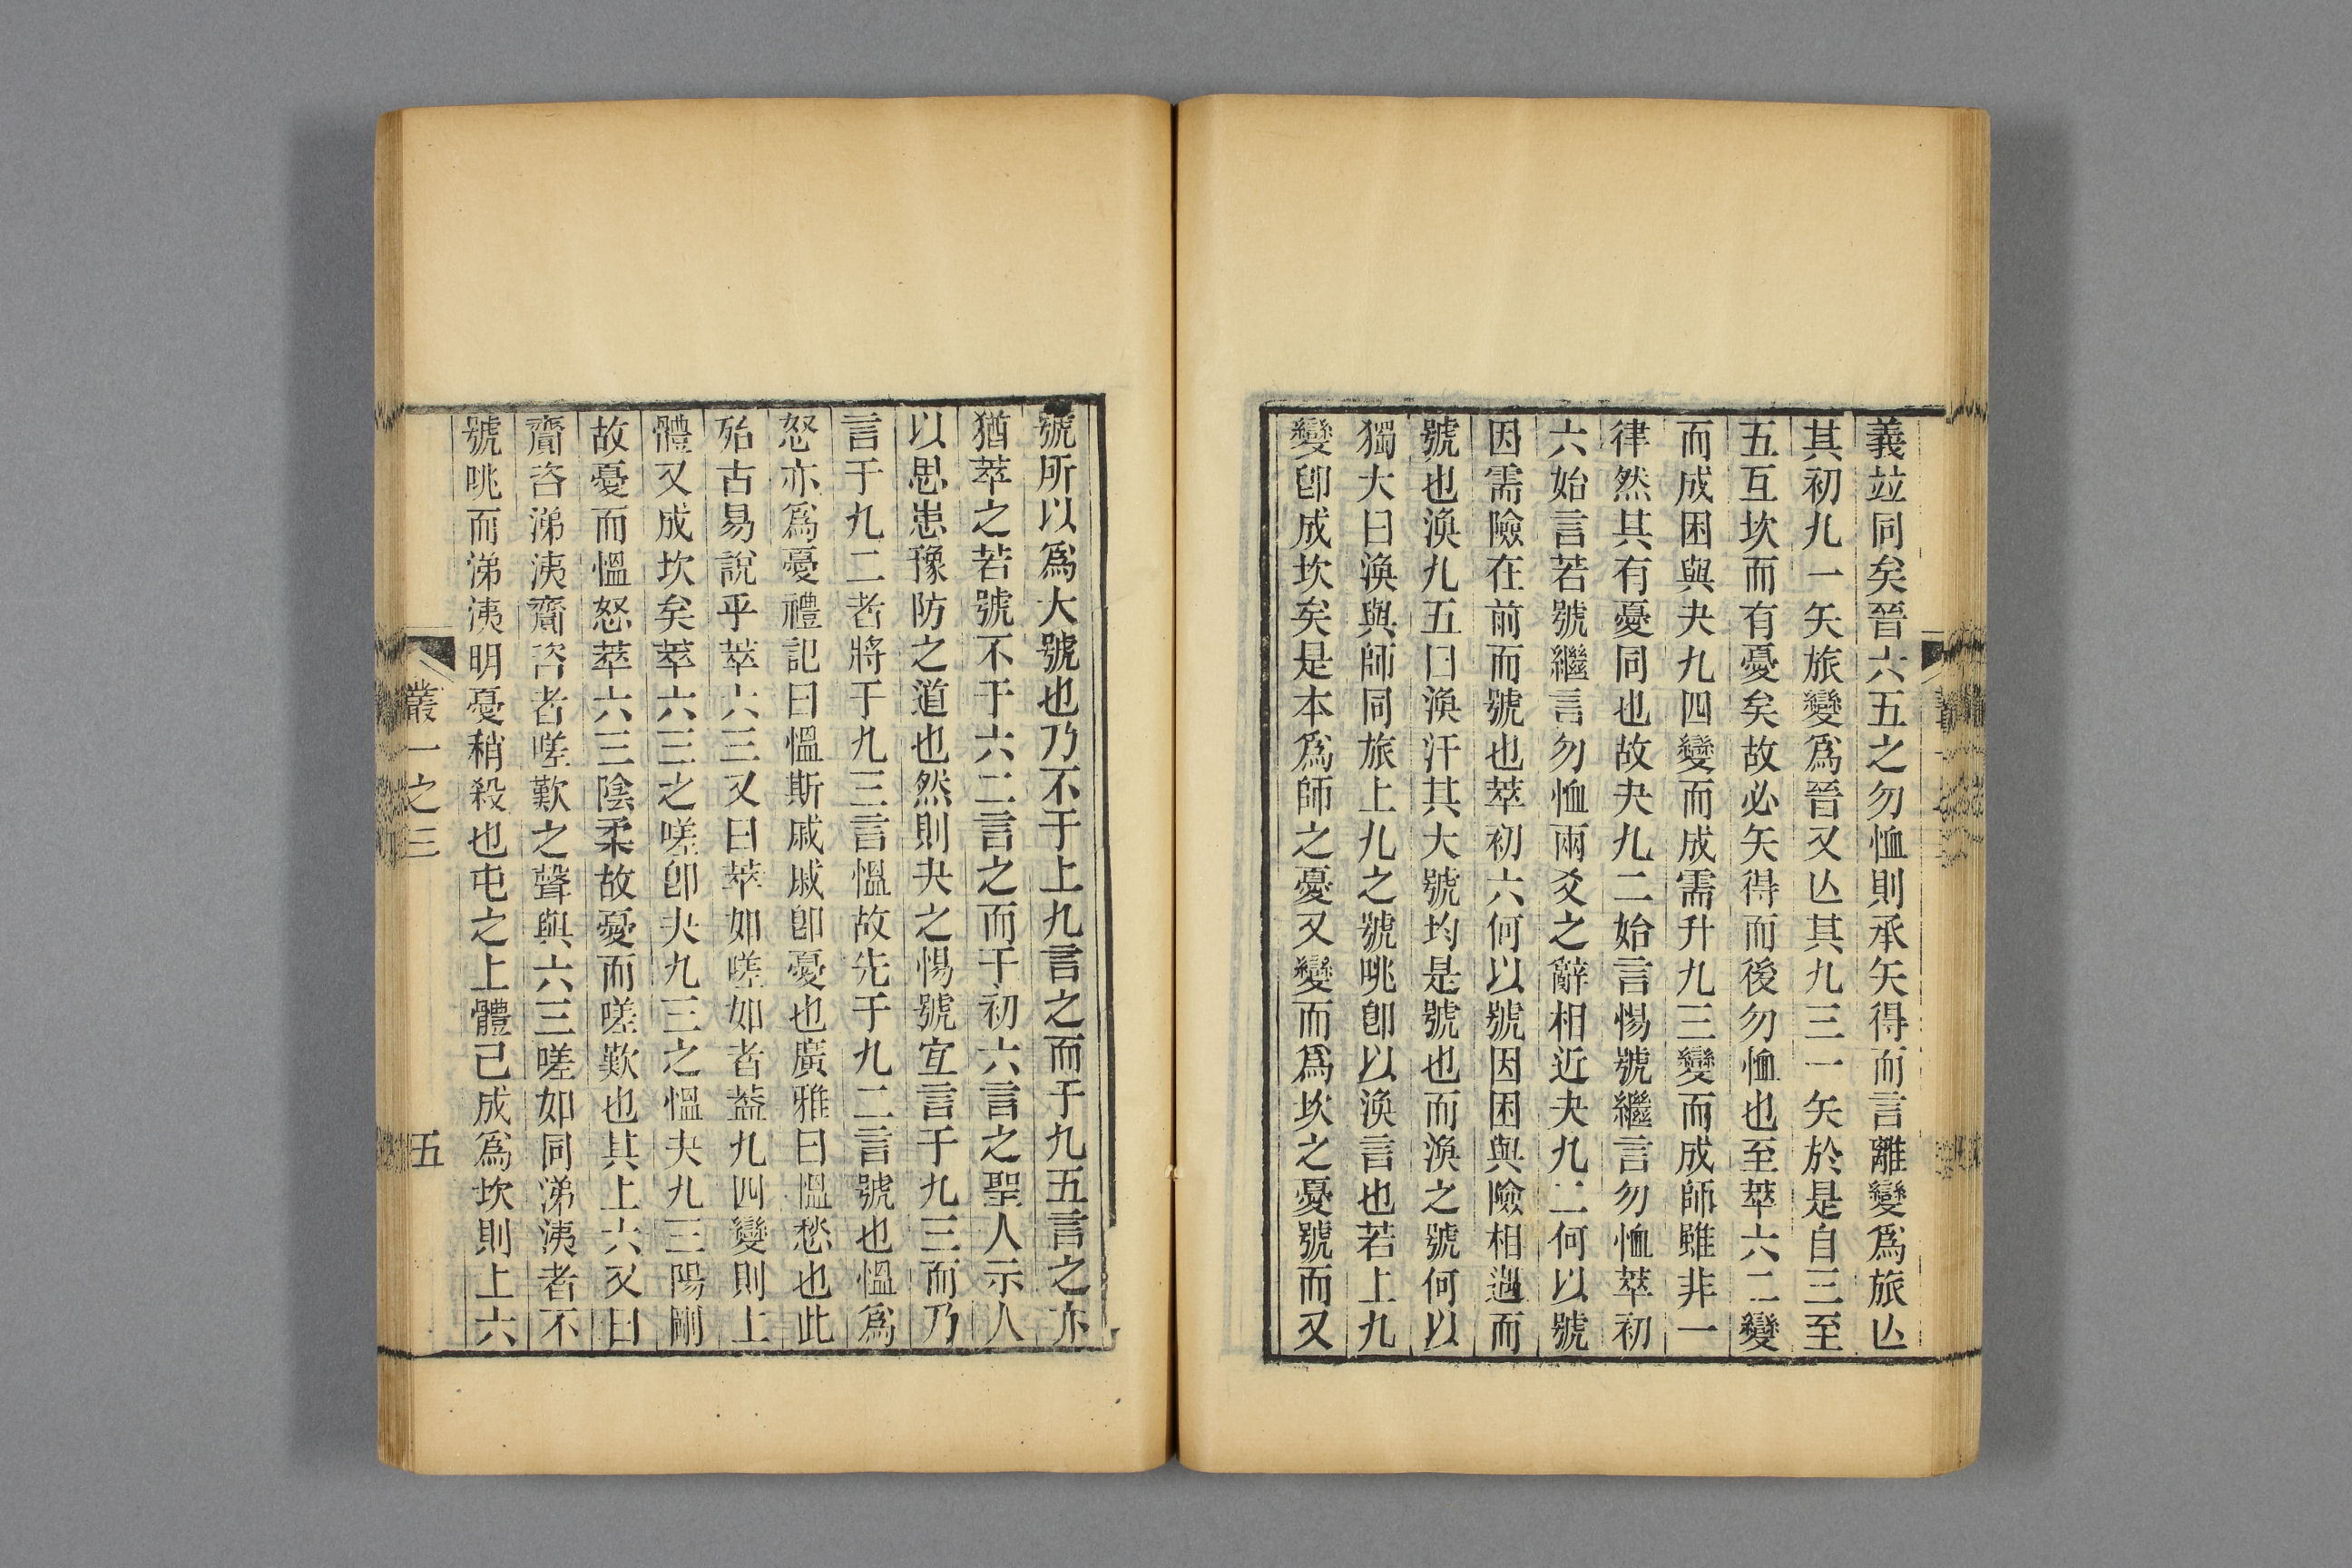 義竝同矣晉六五之勿恤則承矢得而言離變爲旅亾
其初九一矢旅變爲晉又亾其九三一矢於是自三至
五互坎而有憂矣故必矢得而後勿恤也至萃六二變
而成困與夬九四變而成需升九三變而成師雖非一
律然其有憂同也故夬九二始言惕號繼言勿恤萃初
六始言若號繼言勿恤兩爻之辭相近夬九二何以號
因需險在前而號也萃初六何以號因困與險相遇而
號也渙九五曰渙汗其大號均是號也而渙之號何以
獨大曰渙與師同旅上九之號咷卽以渙言也若上九
變卽成坎矣是本爲師之憂又變而爲坎之憂號而又
號所以爲大號也乃不于上九言之而于九五言之亦
猶萃之若號不于六二言之而于初六言之聖人示人
以思患豫防之道也然則夬之惕號宜言于九三而乃
言于九二者將于九三言慍故先于九二言號也慍爲
怒亦爲憂禮記曰慍斯戚戚卽憂也廣雅曰慍愁也此
殆古易說乎萃六三又曰萃如嗟如者葢九四變則上
體又成坎矣萃六三之嗟卽夬九三之慍夬九三陽剛
故憂而慍怒萃六三陰柔故憂而嗟歎也其上六又曰
齎咨涕洟齎咨者嗟歎之聲與六三嗟如同涕洟者不
號咷而涕洟明憂稍殺也屯之上體已成爲坎則上六
叢一之三
五